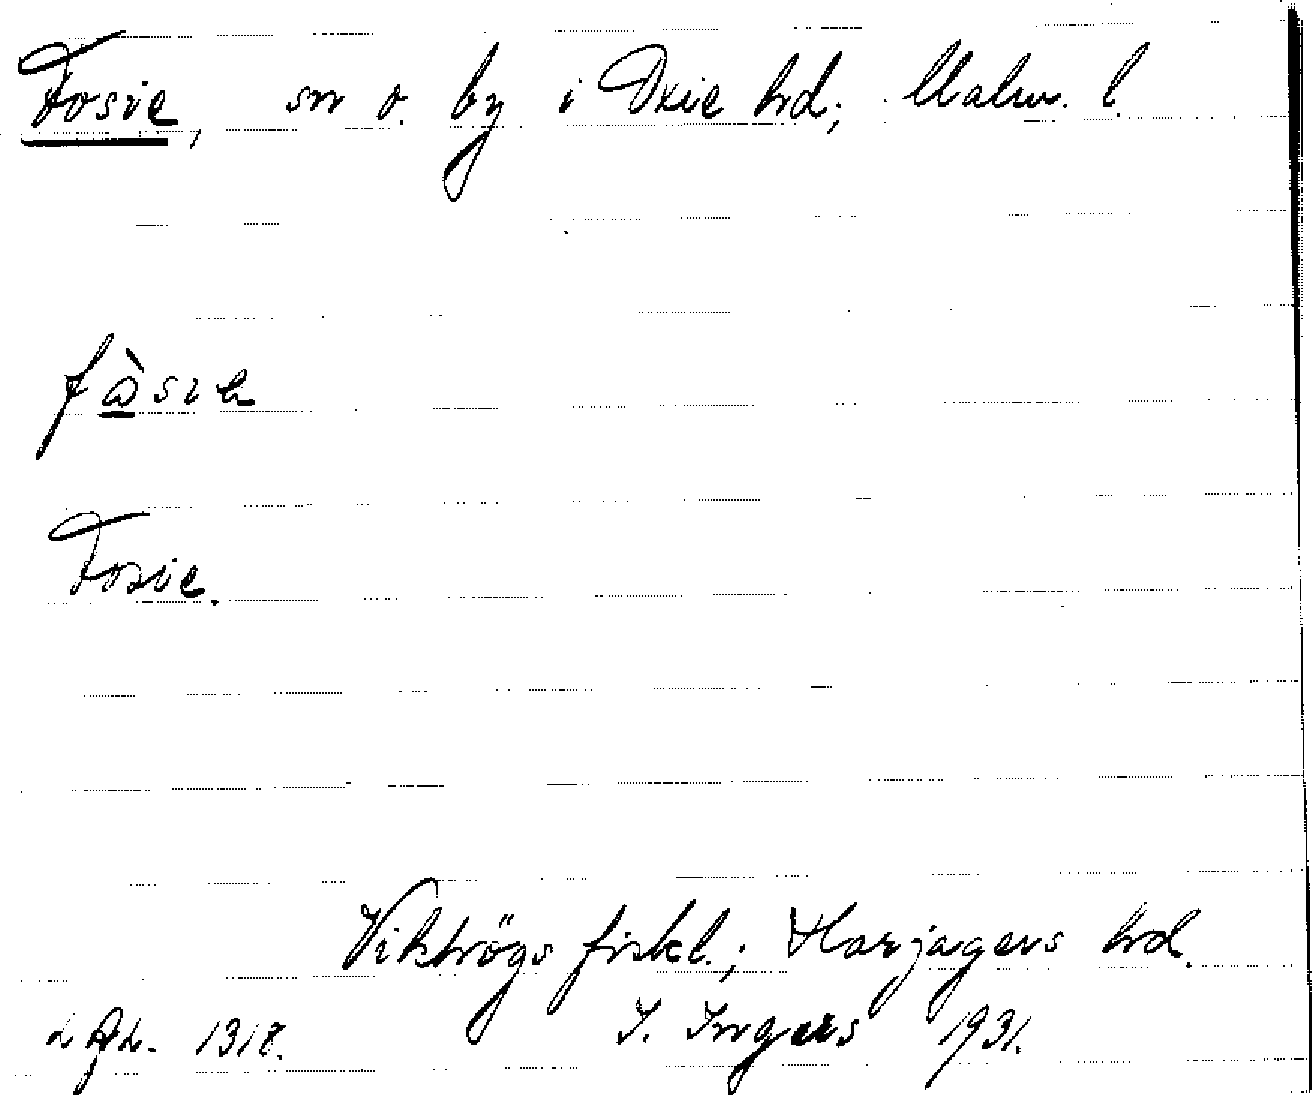 Fosie, sn o. by i Oxie hd; Malm. l.
Fosie.
Vikhögs fiskl.; Harjagers hd.
1318. I. Ingers 1931.